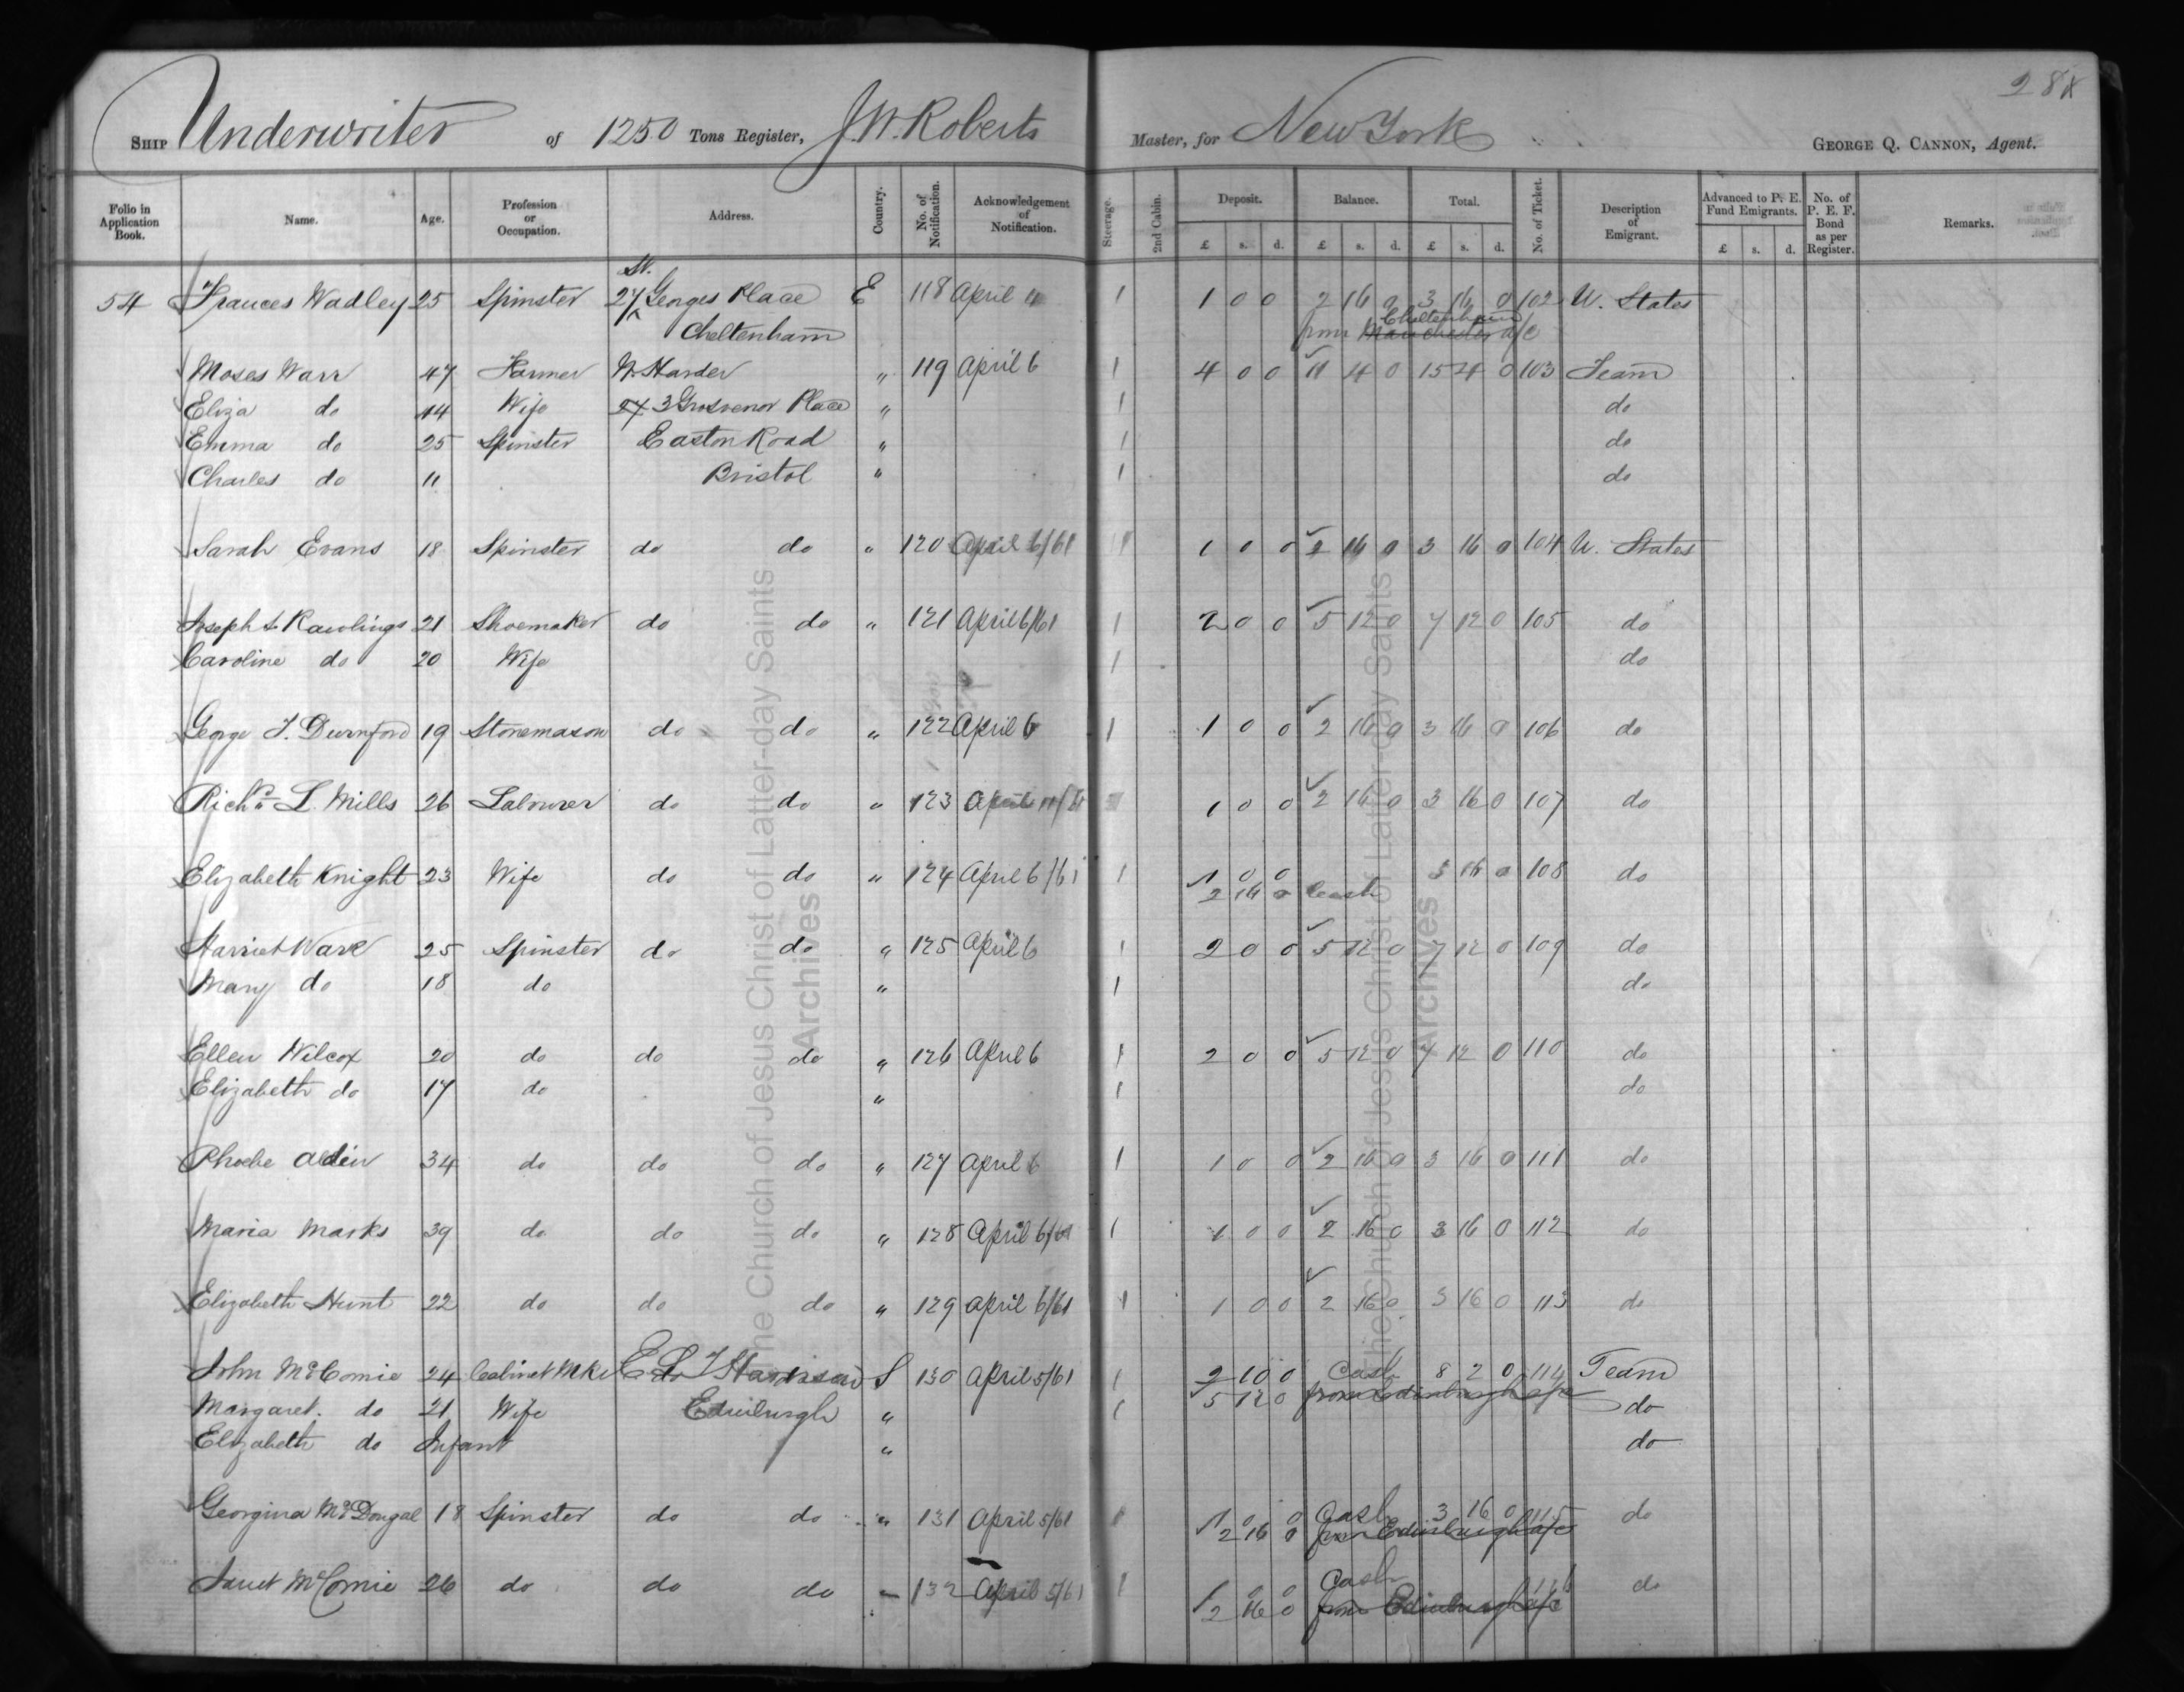 28
SHIP Underwriter of 1250 Tons Register, J.W. Roberts Master, for New York GEORGE Q. CANNON, Agent.
Folio in Application Book. Name. Age. Profession or Occupation. Address. Country. No. of Notification. Acknowledgement of Notification. Steerage. 2nd Cabin. Deposit. Balance. Total. No. of Ticket. Description of Emigrant. Advanced to P. E. Fund Emigrants. No. of P. E. F. Bond as per Register. Remarks.
£ s. d. £ s. d. £ s. d. £ s. d.
54 Frances Wadley 25 Spinster 27 St. Georges Place E 118 April 1 1 0 0 2 16 0 3 16 0 102 U. States
Cheltenham from Manchester Cheltenham a/c
Moses Warr 47 Farmer W. Harder " 119 April 6 1 4 0 0 11 4 0 15 4 0 103 Team
Eliza do 44 Wife 27 3 Grosvenor Place " 1 do
Emma do 25 Spinster Easton Road " 1 do
Charles do 11 Bristol " 1 do
Sarah Evans 18 Spinster do do " 120 April 6/61 1 1 0 0 2 16 0 3 16 0 104 U. States
Joseph S. Rawlings 21 Shoemaker do do " 121 April 6/61 1 2 0 0 5 12 0 7 12 0 105 do
Caroline do 20 Wife 1 do
George J. Durnford 19 Stonemason do do " 122 April 6 1 1 0 0 2 16 0 3 16 0 106 do
Richd. L. Mills 26 Labourer do do " 123 April 1 0 0 2 16 0 3 16 0 107 do
Elizabeth Knight 23 Wife do do " 124 April 6/61 1 1 0 0 3 16 0 108 do
2 16 0 Cash
Harriet Ware 25 Spinster do do " 125 April 6 1 2 0 0 5 12 0 7 12 0 109 do
Mary do 18 do " 1 do
Ellen Wilcox 20 do do do " 126 April 6 1 2 0 0 5 12 0 7 12 0 110 do
Elizabeth do 17 do " 1 do
Phoebe Alden 34 do do do " 127 April 6 1 1 0 0 2 16 0 3 16 0 111 do
Maria Marks 39 do do do " 128 April 6/61 1 1 0 0 2 16 0 3 16 0 112 do
Elizabeth Hunt 22 do do do " 129 April 6/61 1 1 0 0 2 16 0 3 16 0 113 do
John McComie 24 Cabinet Mkr E. L. T. Harrison S 130 April 5/61 1 2 10 0 Cash 8 2 0 114 Team
Margaret. do 21 Wife Edinburgh " 1 5 12 0 from Edinburgh a/c do
Elizabeth do Infant " do
Georgina McDougal 18 Spinster do do " 131 April 5/61 1 1 0 0 Cash 3 16 0 115 do
2 16 0 from Edinburgh a/c
Janet McComie 26 do do do " 132 April 5/61 1 1 0 0 Cash 116 do
2 16 0 from Edinburgh a/c
The Church of Jesus Christ of Latter-day Saints
Archives
The Church of Jesus Christ of Latter-day Saints
Archives